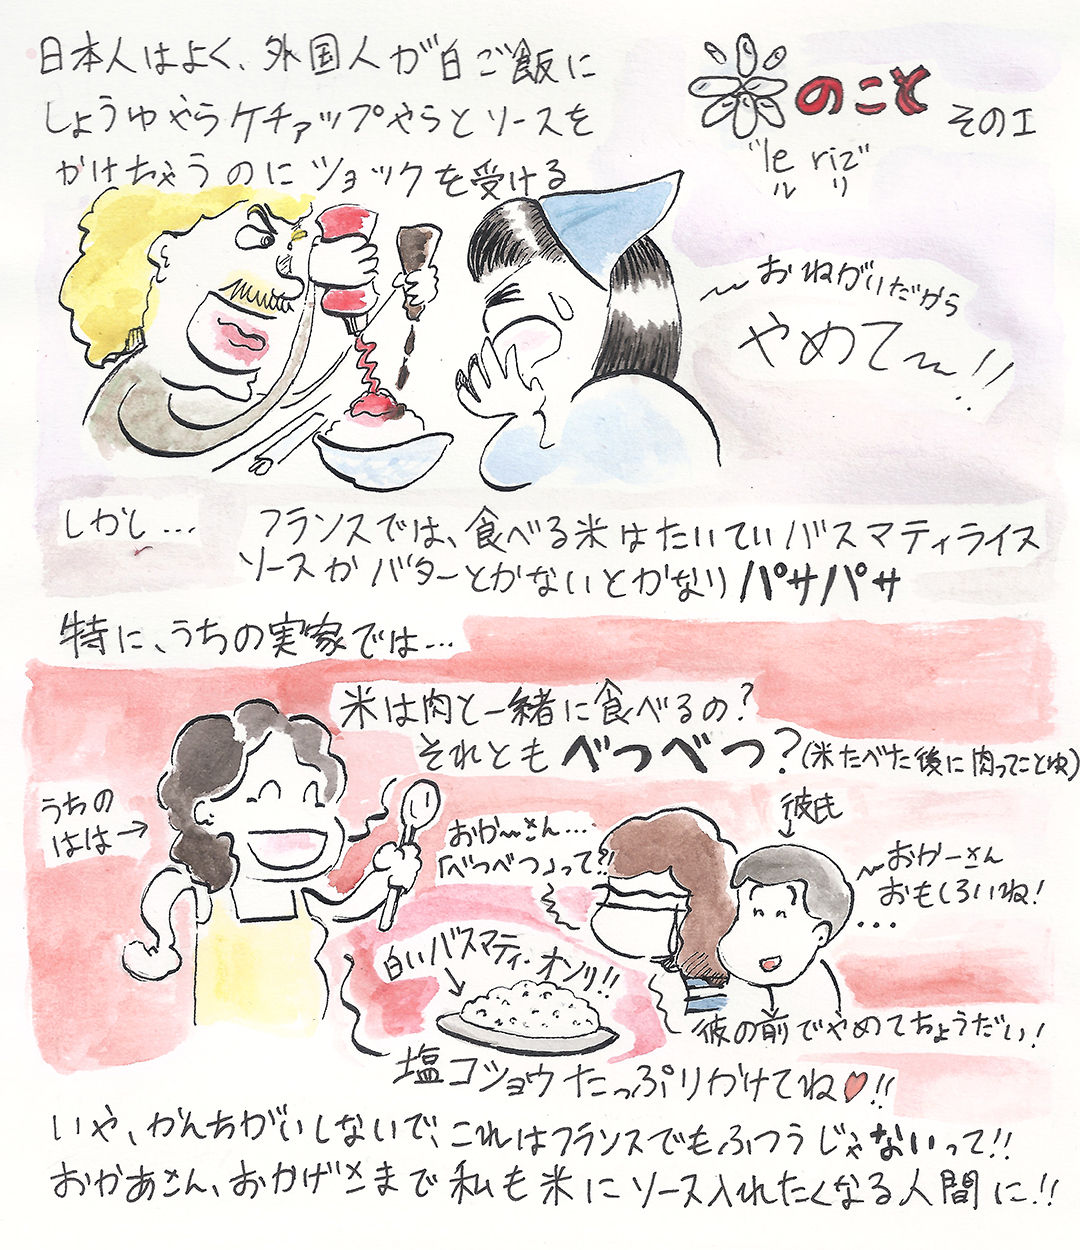 日本人はよく、外国人が白ご飯に
しょうゆやらケチャップやらとソースを
かけちゃうのにショックを受ける
のこと その1
"le riz"
ル リ
〜おねがいだから
やめて〜!!
しかし...
フランスでは、食べる米はたいていバスマティライス
ソースかバターとかないとかなりパサパサ
特に、うちの実家では...
米は肉と一緒に食べるの?
それともべつべつ?(米たべた後に肉ってことゆ)
うちの
はは→
おか〜さん...
「べつべつ」って?!
彼氏
〜おかーさん
おもしろいね!
...
白いバスマティ・オンリ!!
彼の前でやめてちょうだい!
塩コショウたっぷりかけてね♥!!
いや、かんちがいしないで、これはフランスでもふつうじゃないって!!
おかあさん、おかげさまで私も米にソース入れたくなる人間に!!